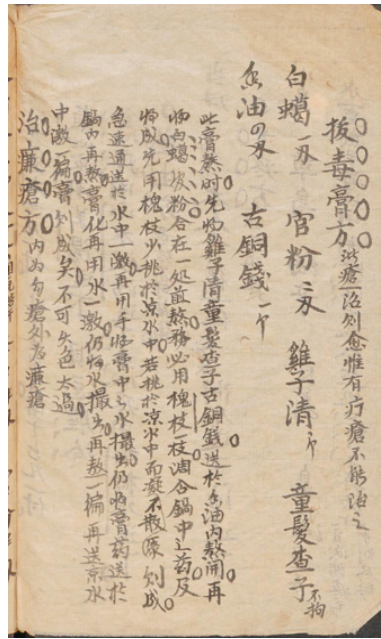 拔毒膏方 此瘡一治則愈惟有疔瘡不能治之
白蠟一刄 官粉二刄 雞子清一个 童髮查子不拘
香油の刄 古銅錢一个
此膏熬时先将雞子清童髮查子古銅錢送於香油内熬開再
将白蠟官粉合在一処前熬務必用槐枝一枝调合鍋中之药及
将成先用槐枝少挑於凉水中若挑於凉水中而凝不散源則成
急速通送於水中一激再用手将膏中之水撮出仍将膏药送於
鍋内再熬膏化再用水一激仍将水撮出再熬一徧再送凉水
中激一徧膏則成矣不可失色太過
治廉瘡方 内为勾瘡外为廉瘡